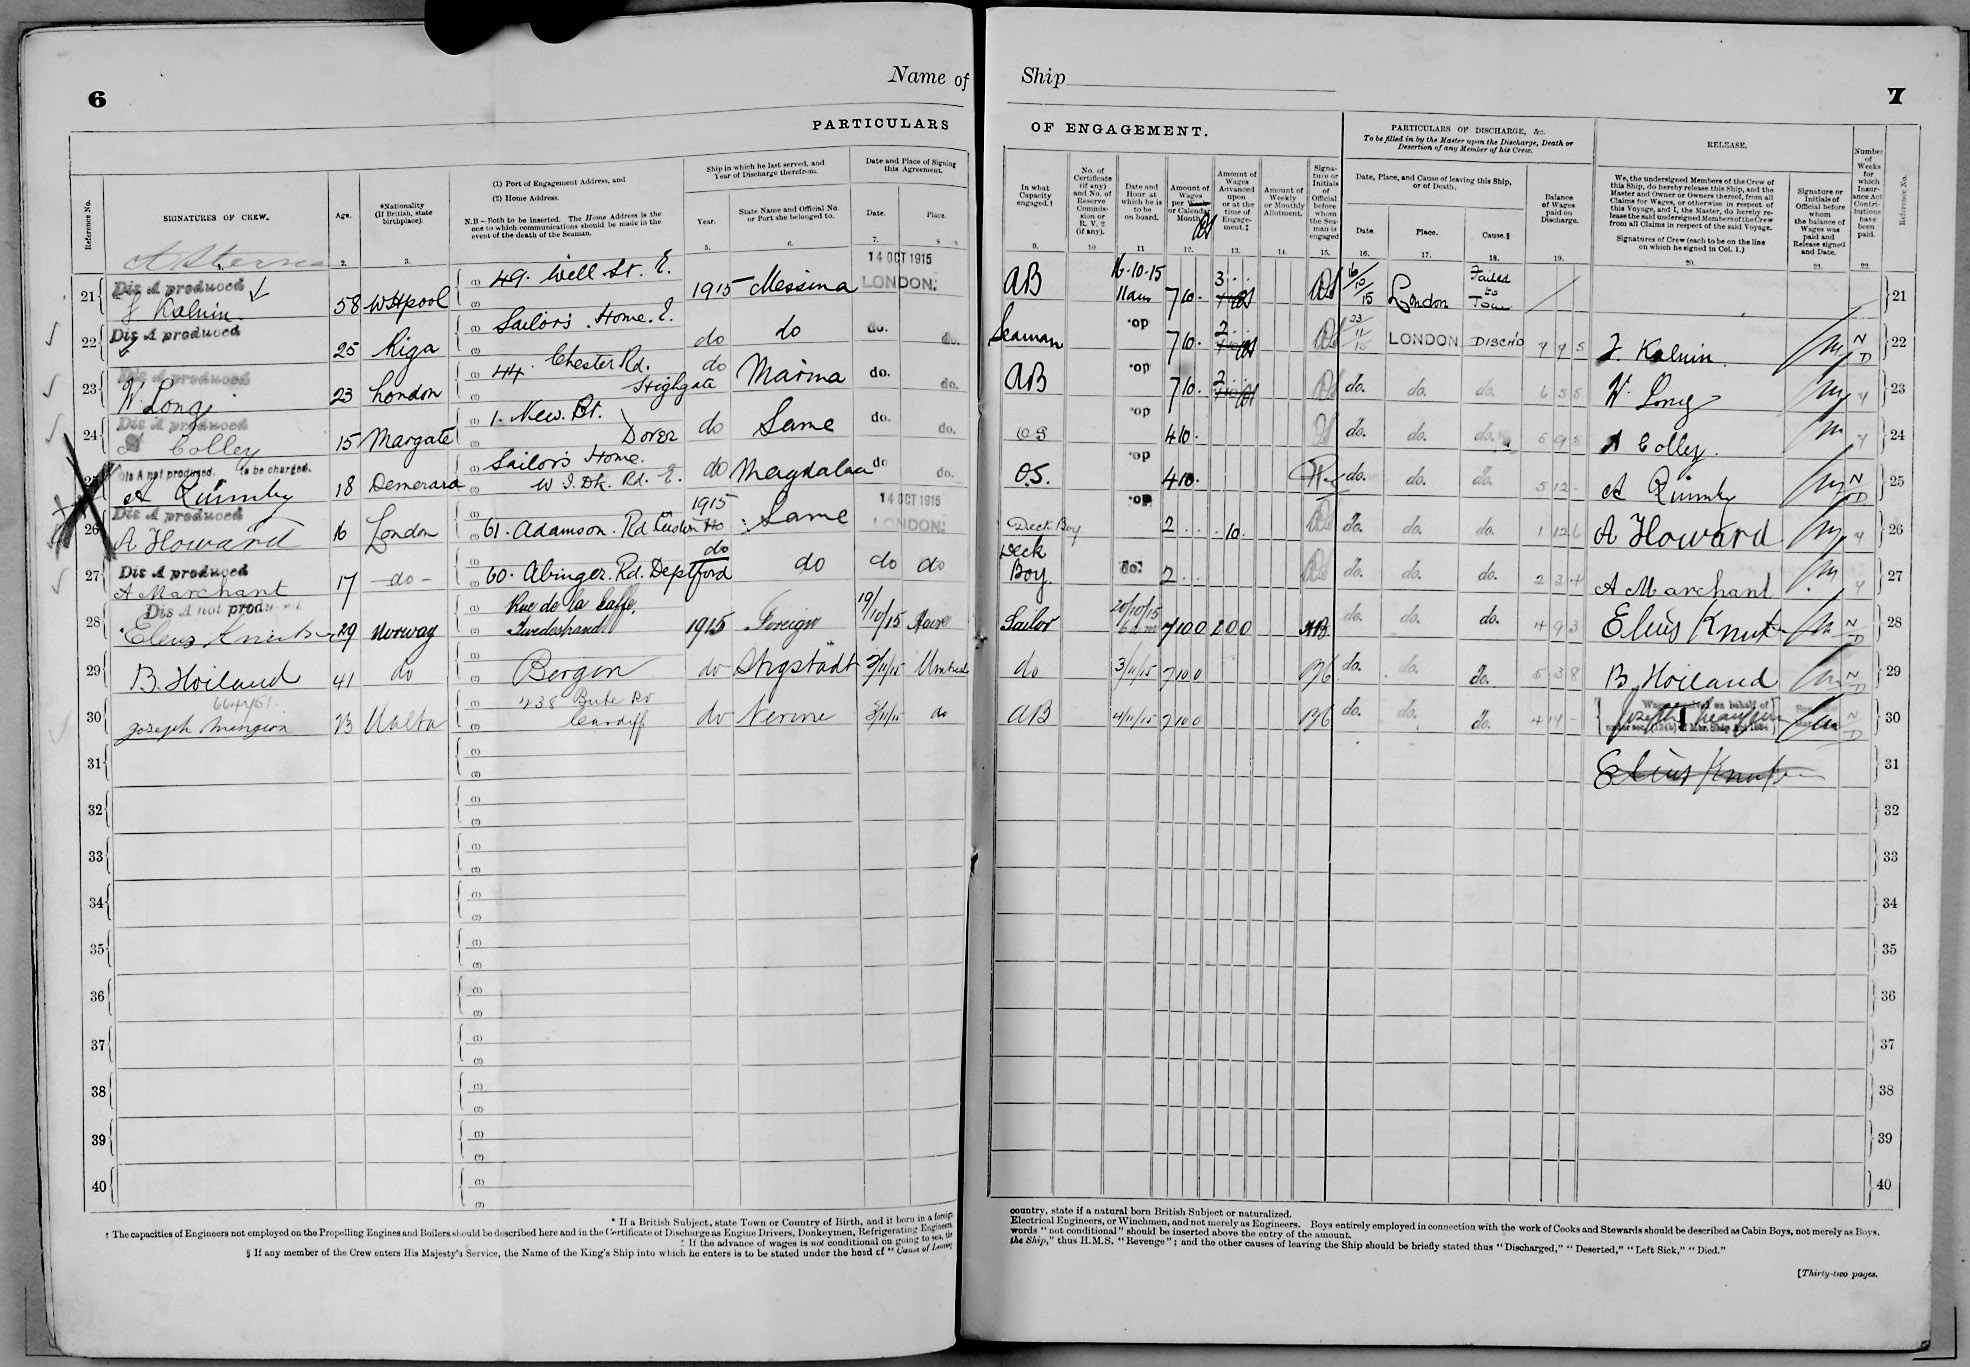 Name of Ship
6
7
PARTICULARS OF ENGAGEMENT.
PARTICULARS OF DISCHARGE, &c.
To be filled in by the Master upon the Discharge, Death or Desertion of any Member of his Crew.
RELEASE.
Reference No.
SIGNATURES OF CREW.
Age.
*Nationality (If British, state birthplace).
(1) Port of Engagement Address, and
(2) Home Address.
N.B.—Both to be inserted. The Home Address is the one to which communications should be made in the event of the death of the Seaman.
Ship in which he last served, and Year of Discharge therefrom.
Year.
State Name and Official No. or Port she belonged to.
Date and Place of Signing this Agreement.
Date.
Place.
In what Capacity engaged.†
No. of Certificate (if any) and No. of Reserve Commission or R.V. 2 (if any).
Date and Hour at which he is to be on board.
Amount of Wages per Week or Calendar Month.
Amount of Wages Advanced upon or at the time of Engagement.‡
Amount of Weekly or Monthly Allotment.
Signature or Initials of Official before whom the Seaman is engaged
Date, Place, and Cause of leaving this Ship, or of Death.
Date.
Place.
Cause.§
Balance of Wages paid on Discharge.
We, the undersigned Members of the Crew of this Ship, do hereby release this Ship, and the Master and Owner or Owners thereof, from all Claims for Wages, or otherwise in respect of this Voyage, and I, the Master, do hereby release the said undersigned Members of the Crew from all Claims in respect of the said Voyage.
Signatures of Crew (each to be on the line on which he signed in Col. 1.)
Signature or Initials of Official before whom the balance of Wages was paid and Release signed and Date.
Number of Weeks for which Insurance Act Contributions have been paid.
Reference No.
2. 3. 5. 6. 7. 8 9. 10 11 12. 13. 14. 15. 16. 17. 18. 19. 20. 21. 22.
14 OCT 1915
21 Dis A produced 58 W Hpool 49. Well St. E. 1915 Messina LONDON. AB 16-10-15 11am 7 10 - 3 London Failed to Join 21
J Kalnin
22 Dis A produced 25 Riga Sailors. Home. E. do do do. do. Seaman op 7 10 - 2 23/11/15 LONDON DISCH'D J. Kalnin N D 22
23 Dis A produced W. Long 23 London 44 Chester Rd. Highgate do Marina do. do. AB op 7 10 - 2 do. do. do. W. Long 23
24 Dis A produced A Colley 15 Margate 1. New. St. Dover do Same do. do. OS op 4 10 - do. do. do. A Colley. 24
25 Dis A not produced. to be charged. A Quimby 18 Demerara Sailors Home. W. I. Dk. Rd. E. do Magdalena do do. O.S. op 4 10 - do. do. do. 5 12 - A Quimby N D 25
26 Dis A produced A Howard 16 London 61. Adamson. Rd Custom Ho 1915 Same 14 OCT 1915 LONDON. Deck Boy op 2 - - 10 - do. do. do. 1 12 6 A Howard 26
27 Dis A produced A Marchant 17 - do - 60. Abinger. Rd. Deptford do do do do Deck Boy. do. 2 - - do. do. do. 2 3 4 A Marchant 27
28 Dis A not produced Elius Knutsen 29 Norway Rue de la Twedestrand 1915 Foreign 19/10/15 Havre Sailor 20/10/15 6 am 7 10 0 2 0 0 do. do. do. 4 9 3 Elius Knutsen N D 28
29 B. Hoiland 41 do Bergen do Stigstadt 3/11/15 Montreal do 3/11/15 7 10 0 do. do. do. 5 3 8 B. Hoiland N D 29
30 Joseph Mangion 23 Malta 238 Bute Rd Cardiff do Nerine 3/11/15 do AB 4/11/15 7 10 0 do. do. do. 4 14 - Joseph Mangion N D 30
31 Elius Knutsen 31
32 32
33 33
34 34
35 35
36 36
37 37
38 38
39 39
40 40
* If a British Subject, state Town or Country of Birth, and if born in a foreign country, state if a natural born British Subject or naturalized.
† The capacities of Engineers not employed on the Propelling Engines and Boilers should be described here and in the Certificate of Discharge as Engine Drivers, Donkeymen, Refrigerating Engineers, Electrical Engineers, or Winchmen, and not merely as Engineers. Boys entirely employed in connection with the work of Cooks and Stewards should be described as Cabin Boys, not merely as Boys.
‡ If the advance of wages is not conditional on going to sea, the words "not conditional" should be inserted above the entry of the amount.
§ If any member of the Crew enters His Majesty's Service, the Name of the King's Ship into which he enters is to be stated under the head of "Cause of Leaving the Ship," thus H.M.S. "Revenge"; and the other causes of leaving the Ship should be briefly stated thus "Discharged," "Deserted," "Left Sick," "Died."
[Thirty-two pages.